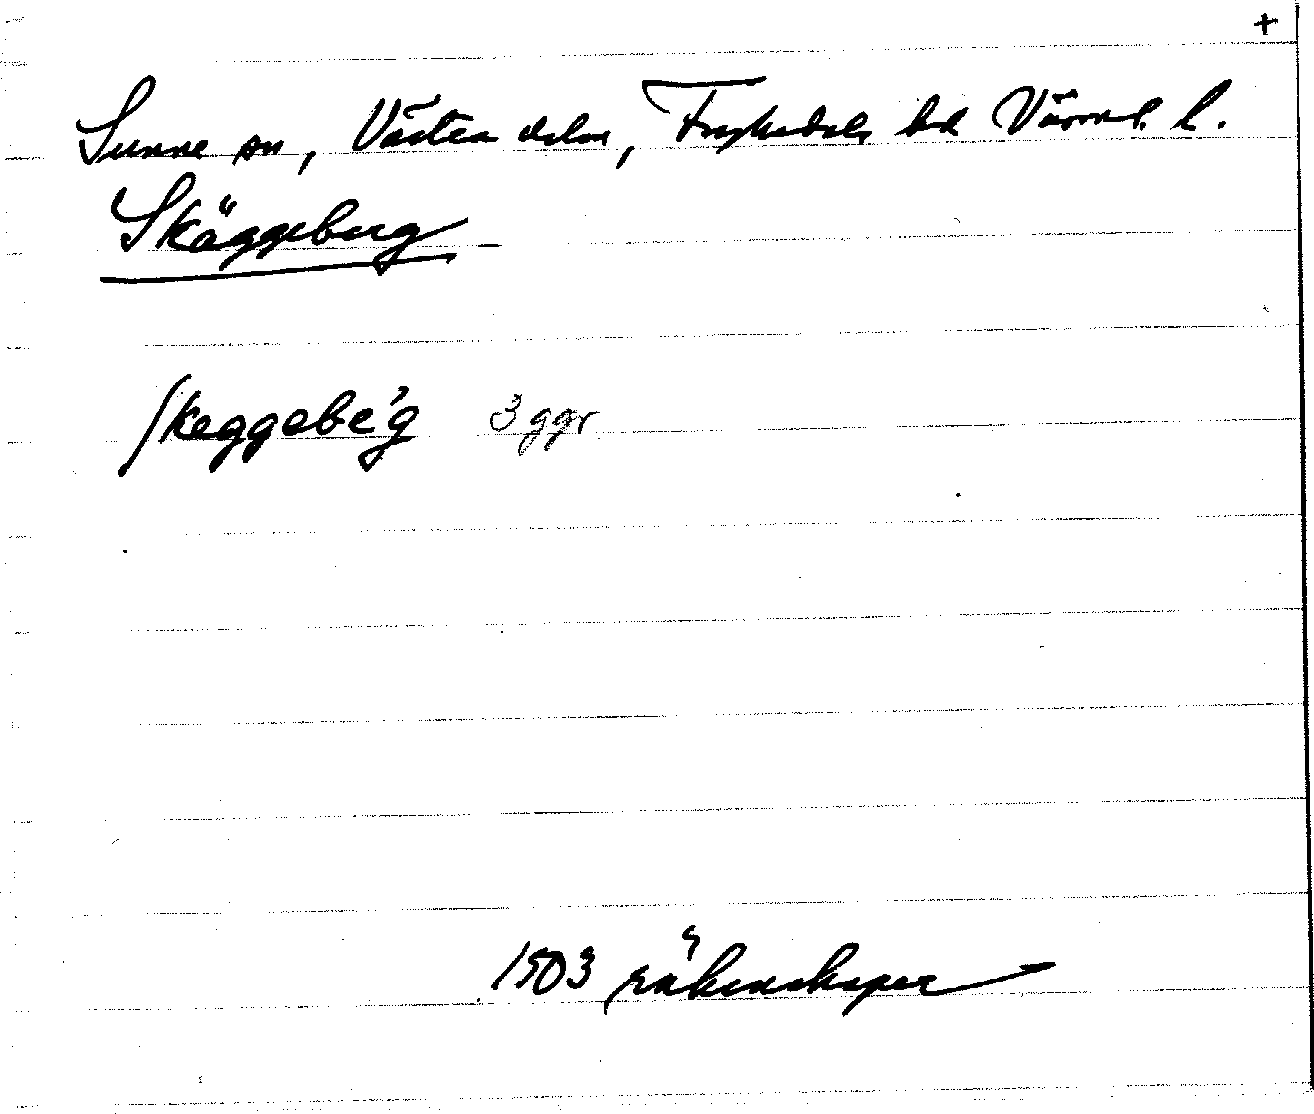 +
Sunne sn, Västra delen, Fryksdals hd Värml. l.
Skäggeberg
Skeggebe'g 3 ggr
1503 räkenskaper